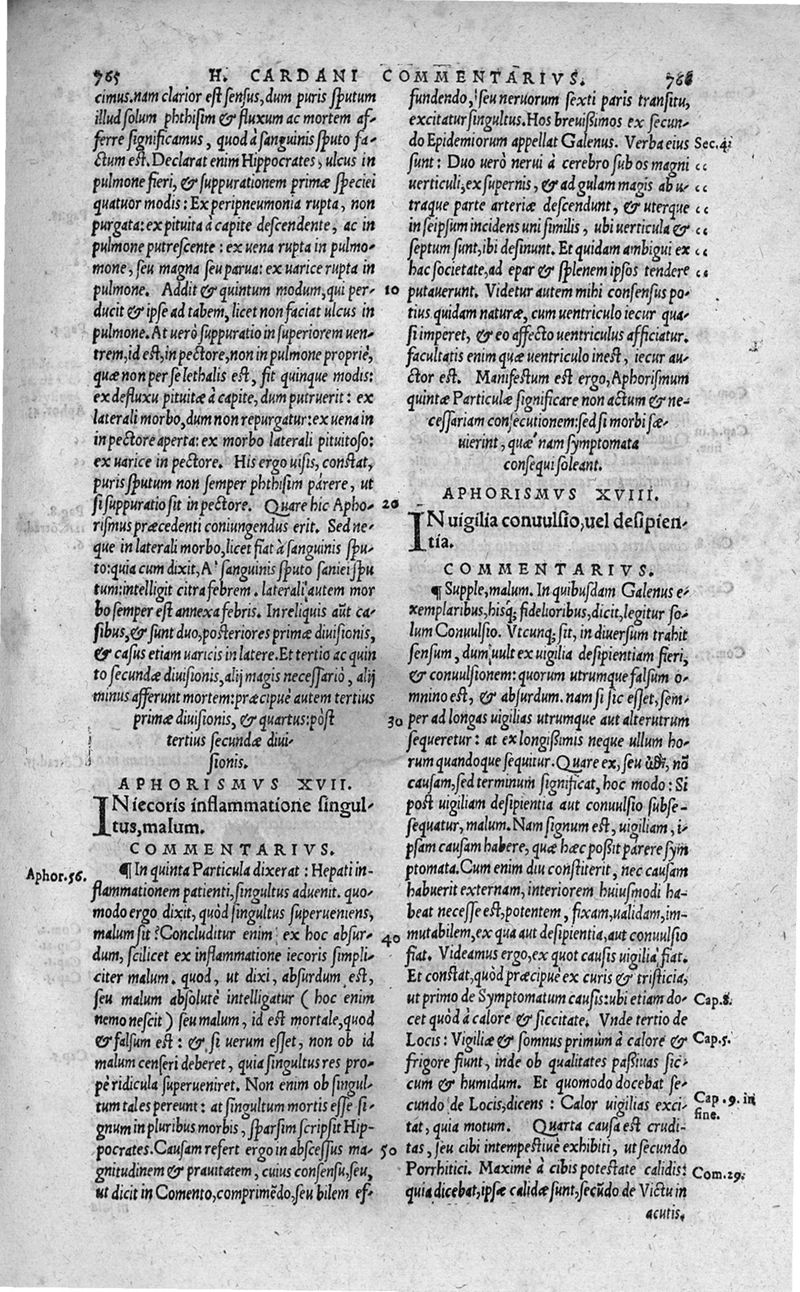 765 H. CARDANI COMMENTARIVS. 766
cimus. nam clarior est sensus, dum puris sputum
illud solum phthisim & fluxum ac mortem af-
ferre significamus, quod à sanguinis sputo fa-
ctum est. Declarat enim Hippocrates, ulcus in
pulmone fieri, & suppurationem primæ speciei
quatuor modis: Ex peripneumonia rupta, non
purgata: ex pituita à capite descendente, ac in
pulmone putrescente: ex uena rupta in pulmo-
mone, seu magna seu parua: ex uarice rupta in
pulmone. Addit & quintum modum, qui per- 10
ducit & ipse ad tabem, licet non faciat ulcus in
pulmone. At uerò suppuratio in superiorem uen-
trem, id est, in pectore, non in pulmone propriè,
quæ non per se lethalis est, fit quinque modis:
ex defluxu pituitæ à capite, dum putruerit: ex
laterali morbo, dum non repurgatur: ex uena in
in pectore aperta: ex morbo laterali pituitoso:
ex uarice in pectore. His ergo uisis, constat,
puris sputum non semper phthisim parere, ut
si suppuratio sit in pectore. Quare hic Apho- 20
rismus præcedenti coniungendus erit. Sed ne-
que in laterali morbo, licet fiat à sanguinis spu-
to: quia cum dixit, A' sanguinis sputo saniei spu
tum: intelligit citra febrem. laterali autem mor
bo semper est annexa febris. In reliquis aũt ca-
sibus, & sunt duo, posteriores primæ diuisionis,
& casus etiam uaricis in latere. Et tertio ac quin
to secundæ diuisionis, alij magis necessariò, alij
minus afferunt mortem: præcipuè autem tertius
primæ diuisionis, & quartus: pòst 30
tertius secundæ diui-
sionis.
APHORISMVS XVII.
IN iecoris inflammatione singul-
tus, malum.
COMMENTARIVS.
Aphor. 56. ¶ In quinta Particula dixerat: Hepati in-
flammationem patienti, singultus aduenit. quo-
modo ergo dixit, quòd singultus superueniens,
malum sit? Concluditur enim ex hoc absur- 40
dum, scilicet ex inflammatione iecoris simpli-
citer malum. quod, ut dixi, absurdum est,
seu malum absolutè intelligatur (hoc enim
nemo nescit) seu malum, id est mortale, quod
& falsum est: & si uerum esset, non ob id
malum censeri deberet, quia singultus res pro-
pè ridicula superueniret. Non enim ob singul-
tum tales pereunt: at singultum mortis esse si-
gnum in pluribus morbis, sparsim scripsit Hip-
pocrates. Causam refert ergo in abscessus ma- 50
gnitudinem & prauitatem, cuius consensu, seu,
ut dicit in Comento, comprimẽdo, seu bilem ef-
fundendo, seu neruorum sexti paris transitu,
excitatur singultus. Hos breuißimos ex secun-
do Epidemiorum appellat Galenus. Verba eius Sec. 4.
sunt: Duo uerò nerui à cerebro sub os magni
uerticuli, ex supernis, & ad gulam magis ab u-
traque parte arteriæ descendunt, & uterque
in seipsum incidens uni similis, ubi uerticula &
septum sunt, ibi desinunt. Et quidam ambigui ex
hac societate, ad epar & splenem ipsos tendere
putauerunt. Videtur autem mihi consensus po-
tius quidam naturæ, cum uentriculo iecur qua-
si imperet, & eo affecto uentriculus afficiatur.
facultatis enim quæ uentriculo inest, iecur au-
ctor est. Manifestum est ergo, Aphorismum
quintæ Particulæ significare non actum & ne-
cessariam consecutionem: sed si morbi sæ-
uierint, quæ nam symptomata
consequi soleant.
APHORISMVS XVIII.
IN uigilia conuulsio, uel desipien-
tia.
COMMENTARIVS.
¶ Supple, malum. In quibusdam Galenus e-
xemplaribus, hisq; fidelioribus, dicit, legitur so-
lum Conuulsio. Vtcunq; sit, in diuersum trahit
sensum, dum uult ex uigilia desipientiam fieri,
& conuulsionem: quorum utrumque falsum o-
mnino est, & absurdum. nam si sic esset, sem-
per ad longas uigilias utrumque aut alterutrum
sequeretur: at ex longißimis neque ullum ho-
rum quandoque sequitur. Quare ex, seu nõ
causam, sed terminum significat, hoc modo: Si
post uigiliam desipientia aut conuulsio subse-
sequatur, malum. Nam signum est, uigiliam, i-
psam causam habere, quæ hæc poßit parere sym
ptomata. Cum enim diu constiterit, nec causam
habuerit externam, interiorem huiusmodi ha-
beat necesse est, potentem, fixam, ualidam, im-
mutabilem, ex qua aut desipientia, aut conuulsio
fiat. Videamus ergo, ex quot causis uigilia fiat.
Et constat, quòd præcipuè ex curis & tristicia,
ut primo de Symptomatum causis: ubi etiam do- Cap. 8.
cet quòd à calore & siccitate. Vnde tertio de
Locis: Vigiliæ & somnus primùm à calore & Cap. 5.
frigore fiunt, inde ob qualitates paßiuas sic-
cum & humidum. Et quomodo docebat se-
cundo de Locis, dicens: Calor uigilias exci- Cap. 9. in
tat, quia motum. Quarta causa est crudi- fine.
tas, seu cibi intempestiuè exhibiti, ut secundo
Porrhitici. Maximè à cibis potestate calidis: Com. 29.
quia dicebat, ipsæ calidæ sunt, secũdo de Victu in
acutis.